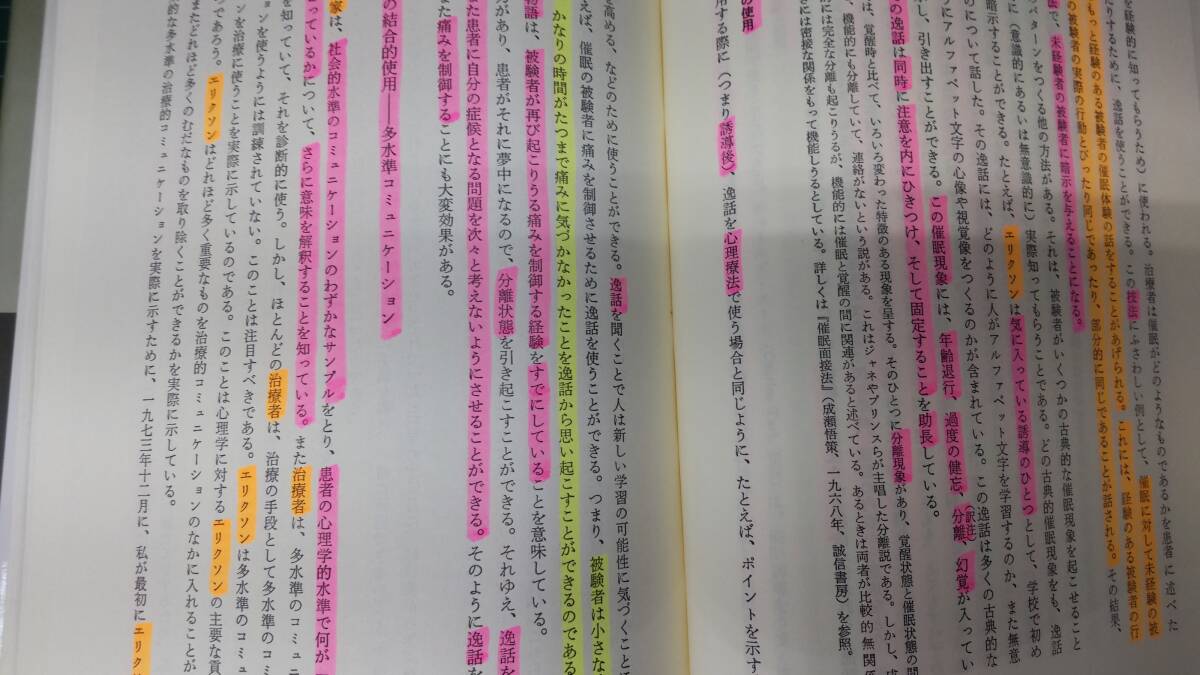 を経験的に知ってもらうため）に使われる。治療者は催眠がどのようなものであるかを患者に述べた
りするために、逸話を使うことができる。この技法にふさわしい例として、催眠に対して未経験の被
もっと経験のある被験者の催眠体験の話をすることがあげられる。これには、経験のある被験者の行
の被験者の実際の行動とぴったり同じであったり、部分的に同じであることが話される。その結果、
法で、未経験者の被験者に暗示を与えることになる。
ターンをつくる他の方法がある。それは、被験者がいくつかの古典的な催眠現象を起こせること
に（意識的にあるいは無意識的に）実際知ってもらうことである。どの古典的催眠現象をも、逸話
暗示することができる。たとえば、エリクソンは気に入っている誘導のひとつとして、学校で初め
にアルファベット文字を学習するのか、また無意
について話した。その逸話には、どのように人がアルファベット文字の心像や視覚像をつくるのかが含まれている。この逸話は多くの古典的な
し、引き出すことができる。この催眠現象には、年齢退行、過度の健忘、分離、幻覚が入ってい
（訳注）
の逸話は同時に注意を内にひきつけ、そして固定することを助長している。
は、覚醒時と比べて、いろいろ変わった特徴のある現象を呈する。そのひとつに分離現象があり、覚醒状態と催眠状態の間
、機能的にも分離していて、連絡がないという説がある。これはジャネやプリンスらが主唱した分離説である。しかし、
には完全な分離も起こりうるが、機能的には催眠と覚醒の間に関連があると述べている。あるときは両者が比較的無関係
には密接な関係をもって機能しうるとしている。詳しくは『催眠面接法』（成瀬悟策、一九六八年、誠信書房）を参照。
の使用
用する際に（つまり誘導後）、逸話を心理療法で使う場合と同じように、たとえば、ポイントを示す
を高める、などのために使うことができる。逸話を聞くことで人は新しい学習の可能性に気づくこと
えば、催眠の被験者に痛みを制御させるために逸話を使うことができる。つまり、被験者は小さな
かなりの時間がたつまで痛みに気づかなかったことを逸話から思い起こすことができるのである
物語は、被験者が再び起こりうる痛みを制御する経験をすでにしていることを意味している。
があり、患者がそれに夢中になるので、分離状態を引き起こすことができる。それゆえ、逸話を
た患者に自分の症候となる問題を次々と考えないようにさせることができる。そのように逸話を
また痛みを制御することにも大変効果がある。
の結合的使用——多水準コミュニケーション
家は、社会的水準のコミュニケーションのわずかなサンプルをとり、患者の心理学的水準で何が
っているかについて、さらに意味を解釈することを知っている。また治療者は、多水準のコミュニ
を知っていて、それを診断的に使う。しかし、ほとんどの治療者は、治療の手段として多水準のコミ
ションを使うようには訓練されていない。このことは注目すべきである。エリクソンは多水準のコミュ
ンを治療に使うことを実際に示しているのである。このことは心理学に対するエリクソンの主要な貢
つであろう。エリクソンはどれほど多く重要なものを治療的コミュニケーションのなかに入れることが
またどれほど多くのむだなものを取り除くことができるかを実際に示している。
的な多水準の治療的コミュニケーションを実際に示すために、一九七三年十二月に、私が最初にエリク